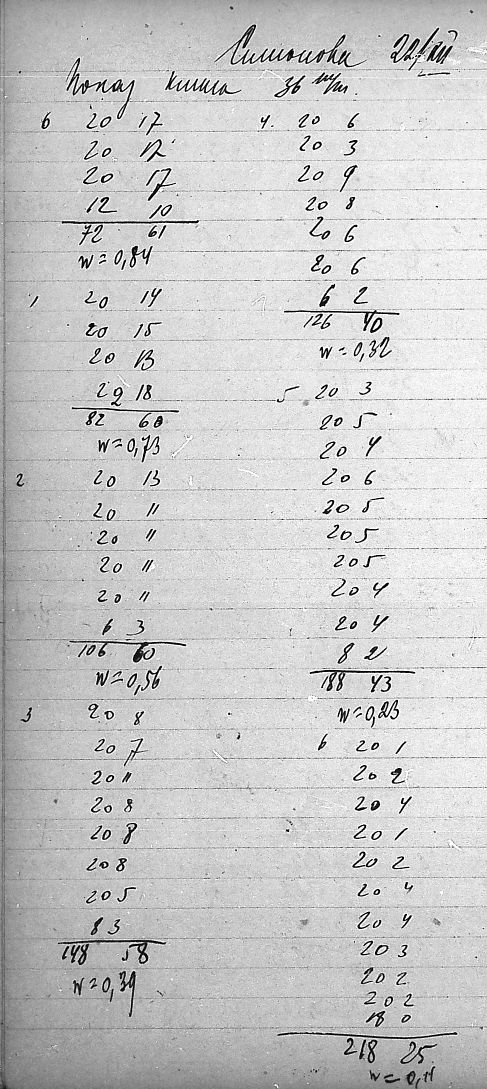 Симонова 22/XII
книга 36 m/m.
6 20 17
20 17
20 17
12 10
72 61
w=0,84
1 20 14
20 15
20 13
22 18
82 60
w=0,73
2 20 13
20 11
20 11
20 11
20 11
6 3
106 60
w=0,56
3 20 8
20 7
20 11
20 8
20 8
20 8
20 5
8 3
148 58
w=0,39
4. 20 6
20 3
20 9
20 8
20 6
20 6
6 2
126 40
w=0,32
5 20 3
20 5
20 4
20 6
20 5
20 5
20 5
20 4
20 4
8 2
188 43
w=0,23
6 20 1
20 2
20 4
20 1
20 2
20 4
20 4
20 3
20 2
20 2
18 0
218 25
w=0,11